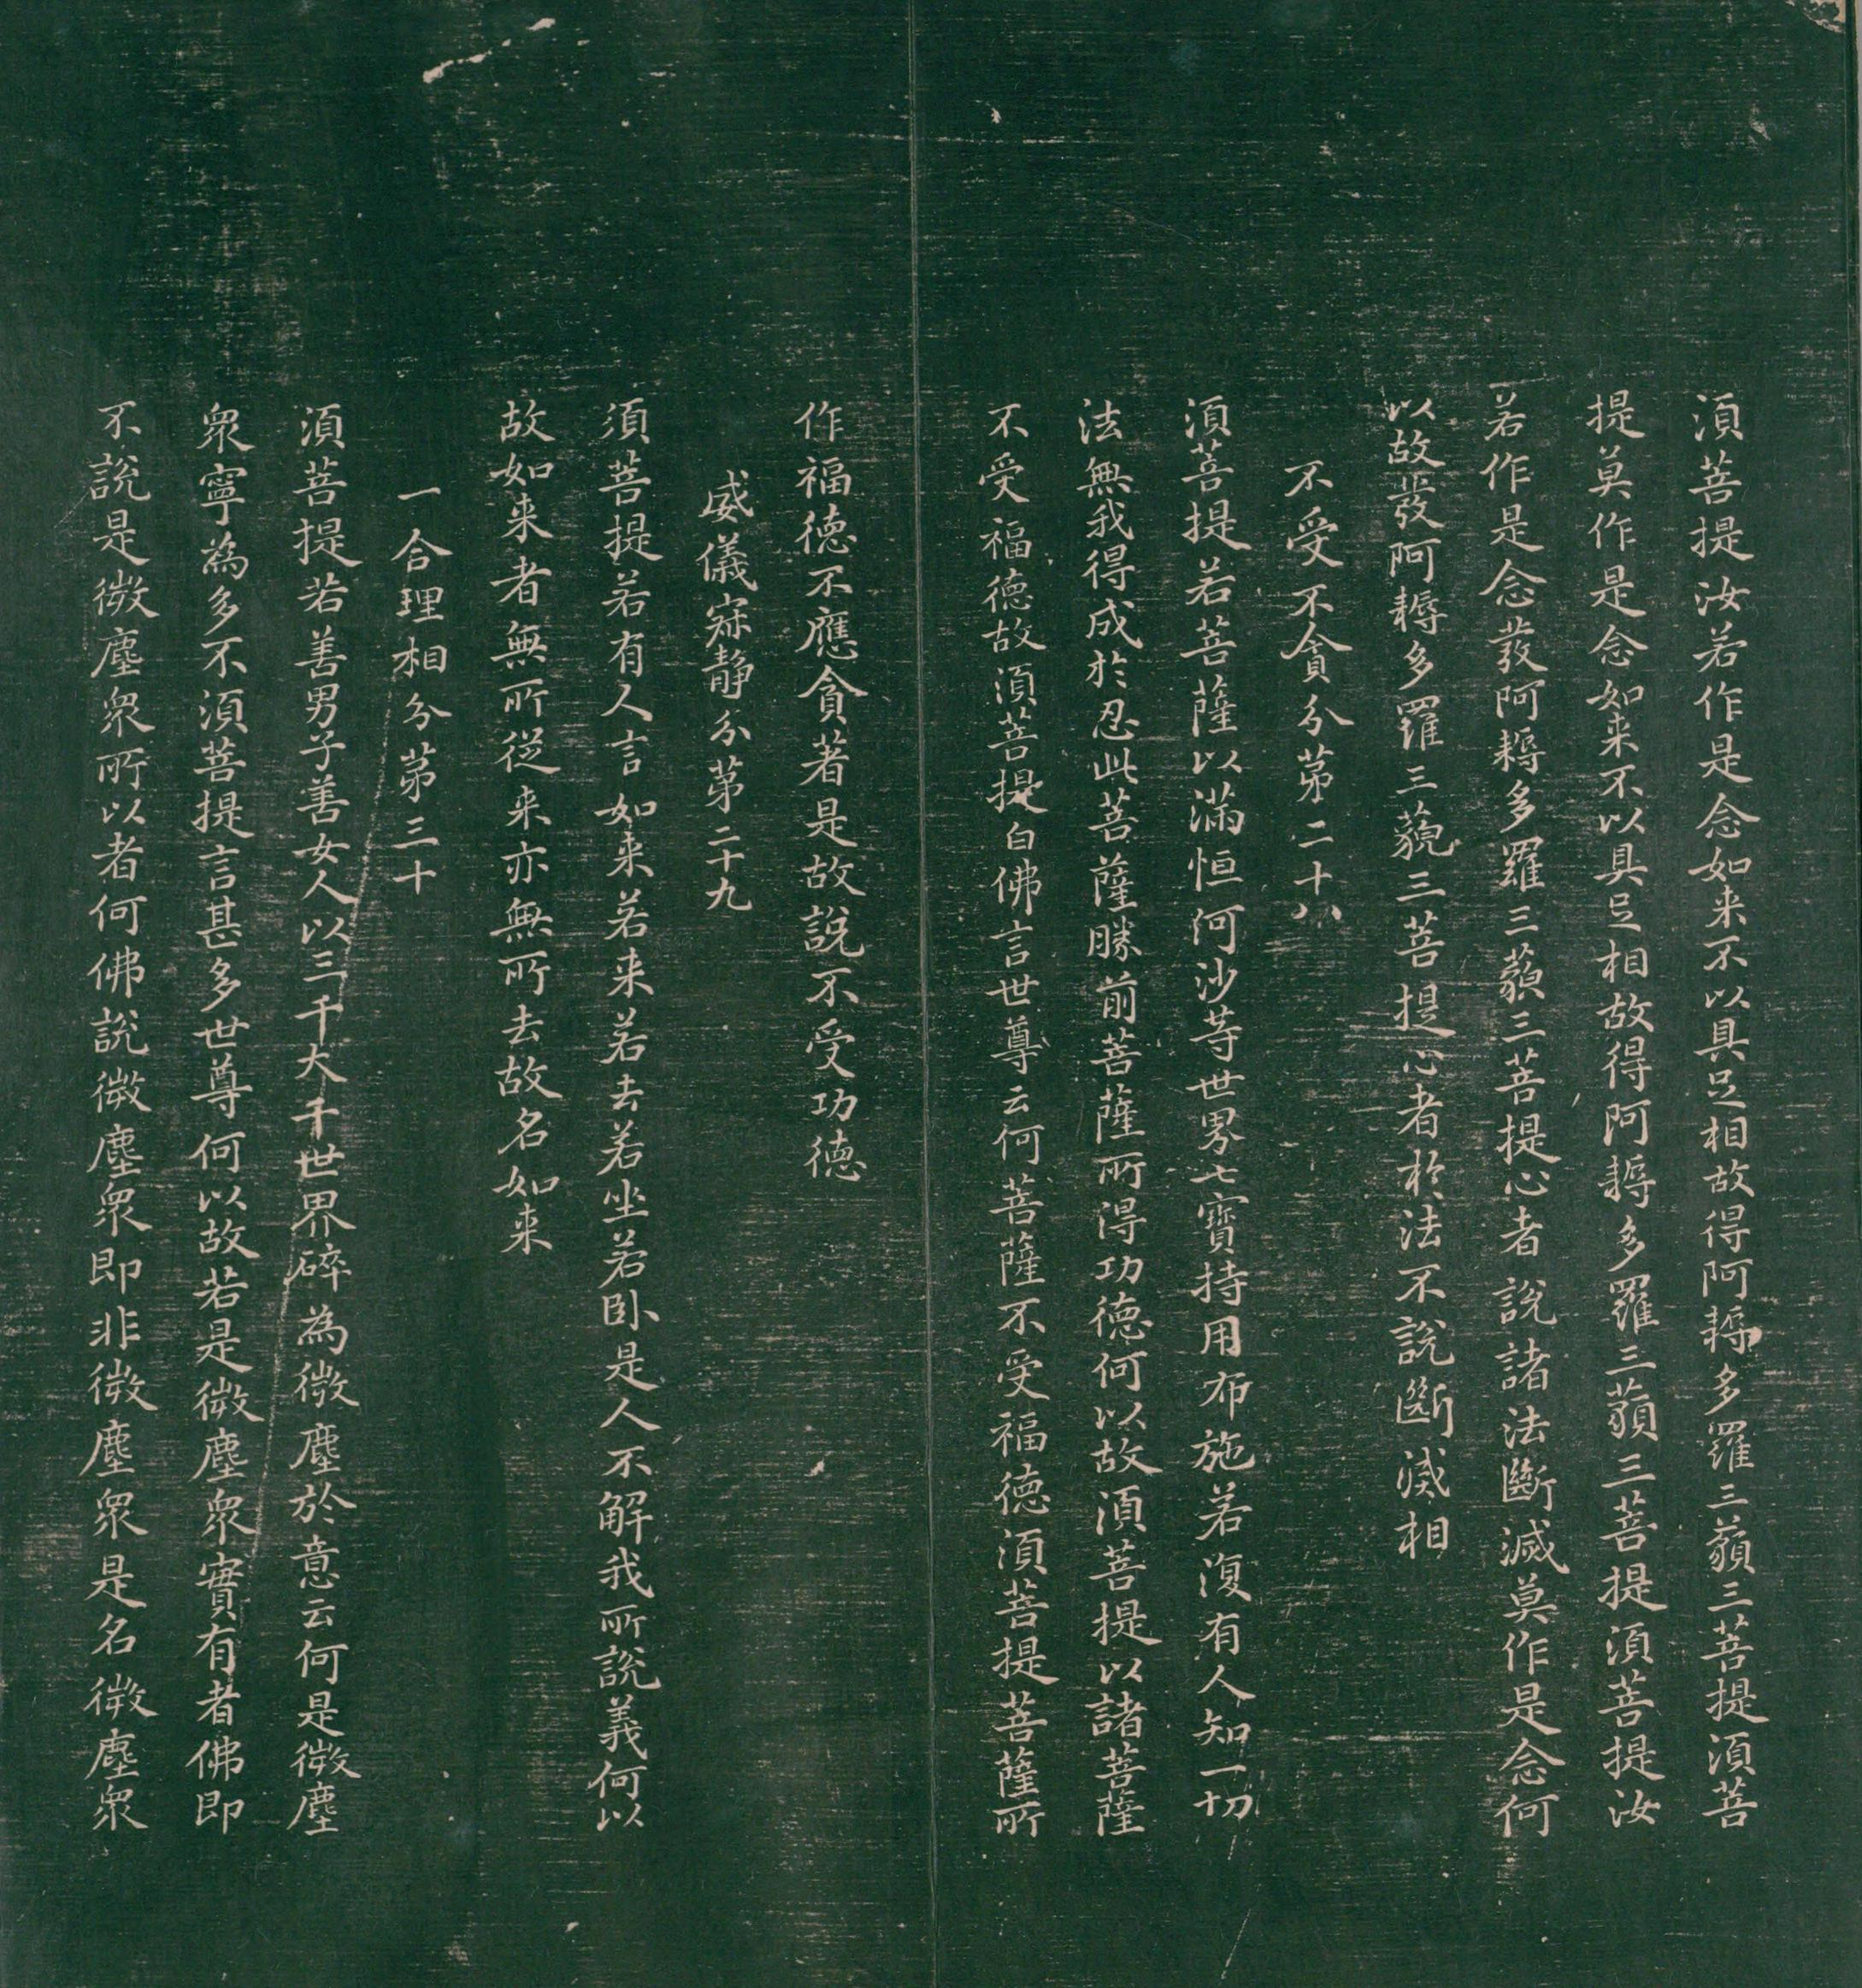 湏菩提汝若作是念如来不以具足相故得阿耨多羅三藐三菩提湏菩
提莫作是念如来不以具足相故得阿耨多羅三藐三菩提湏菩提汝
若作是念發阿耨多羅三藐三菩提心者說諸法斷滅莫作是念何
以故發阿耨多羅三藐三菩提心者於法不說斷滅相
不受不貪分第二十八
湏菩提若菩薩以滿恒河沙等世界七寶持用布施若復有人知一切
法無我得成於忍此菩薩勝前菩薩所得功德何以故湏菩提以諸菩薩
不受福德故湏菩提白佛言世尊云何菩薩不受福德湏菩提菩薩所
作福德不應貪著是故說不受功德
威儀寂静分第二十九
須菩提若有人言如来若来若去若坐若卧是人不解我所說義何以
故如来者無所從来亦無所去故名如来
一合理相分第三十
湏菩提若善男子善女人以三千大千世界碎為微塵於意云何是微塵
衆寧為多不湏菩提言甚多世尊何以故若是微塵衆實有者佛即
不說是微塵衆所以者何佛說微塵衆即非微塵衆是名微塵衆